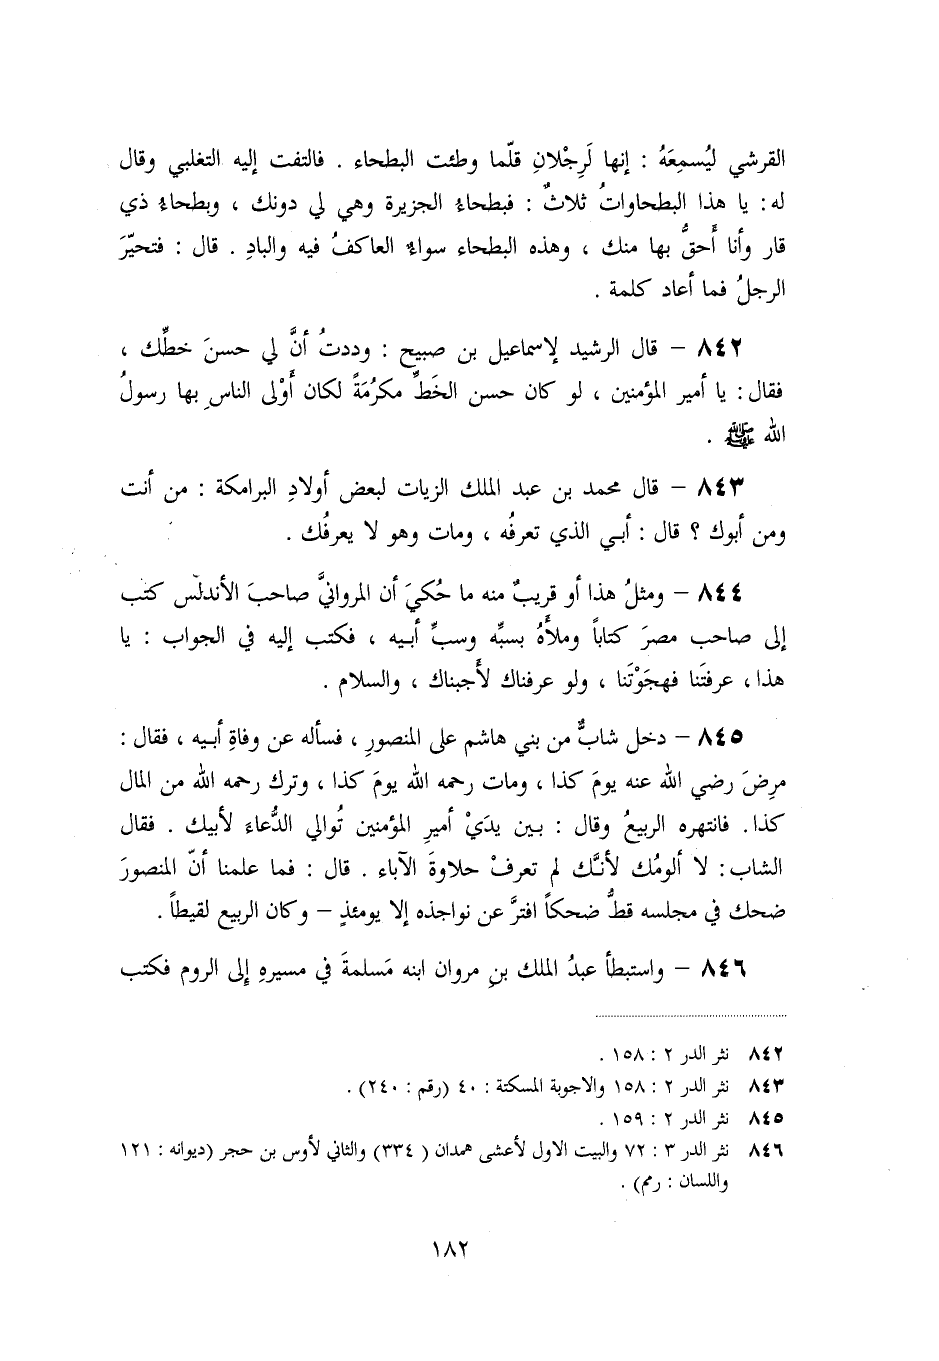 القرشي ليُسمِعَهُ : إنها لَرِجْلانِ قلّما وطئت البطحاء . فالتفت إليه التغلبي وقال
له : يا هذا البطحاواتُ ثلاثٌ : فبطحاءُ الجزيرة وهي لي دونك ، وبطحاءُ ذي
قار وأنا أَحقُّ بها منك ، وهذه البطحاء سواءٌ العاكفُ فيه والبادِ . قال : فتحيّرَ
الرجلُ فما أعاد كلمة .
٨٤٢ – قال الرشيد لإسماعيل بن صبيح : وددتُ أنَّ لي حسنَ خطِّك ،
فقال : يا أمير المؤمنين ، لو كان حسن الخَطِّ مكرُمَةً لكان أَوْلى الناسِ بها رسولُ
الله ﷺ .
٨٤٣ – قال محمد بن عبد الملك الزيات لبعض أولادِ البرامكة : من أنت
ومن أبوك ؟ قال : أبي الذي تعرفُه ، ومات وهو لا يعرفُك .
٨٤٤ – ومثلُ هذا أو قريبٌ منه ما حُكيَ أن المروانيَّ صاحبَ الأندلس كتب
إلى صاحب مصرَ كتاباً وملأَهُ بسبِّه وسبِّ أبيه ، فكتب إليه في الجواب : يا
هذا ، عرفتَنا فهجَوْتَنا ، ولو عرفناك لأَجبناك ، والسلام .
٨٤٥ – دخل شابٌّ من بني هاشم على المنصورِ ، فسأله عن وفاةِ أبيه ، فقال :
مرِضَ رضي الله عنه يومَ كذا ، ومات رحمه الله يومَ كذا ، وترك رحمه الله من المال
كذا . فانتهره الربيعُ وقال : بين يدَيْ أميرِ المؤمنين تُوالي الدُّعاءَ لأبيك . فقال
الشاب : لا ألومُك لأنَّك لم تعرفْ حلاوةَ الآباء . قال : فما علمنا أنّ المنصورَ
ضحك في مجلسه قطُّ ضحكاً افترَّ عن نواجذه إلا يومئذٍ – وكان الربيع لقيطاً .
٨٤٦ – واستبطأ عبدُ الملك بنِ مروان ابنه مَسلمةَ في مسيرهِ إلى الروم فكتب
٨٤٢ نثر الدر ٢ : ١٥٨ .
٨٤٣ نثر الدر ٢ : ١٥٨ والاجوبة المسكتة : ٤٠ (رقم : ٢٤٠) .
٨٤٥ نثر الدر ٢ : ١٥٩ .
٨٤٦ نثر الدر ٣ : ٧٢ والبيت الاول لأعشى همدان ( ٣٣٤) والثاني لأوس بن حجر (ديوانه : ١٢١
واللسان : رمم) .
١٨٢